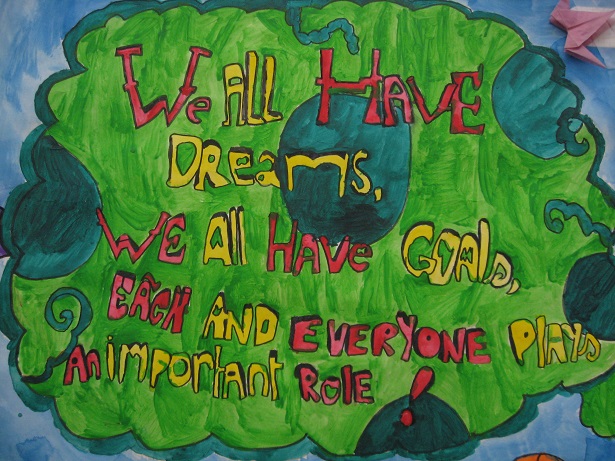 We All HAVE
DReams,
WE All HAVe GOAls,
EACH AND EVERYONE PlAYS
An important ROLE!